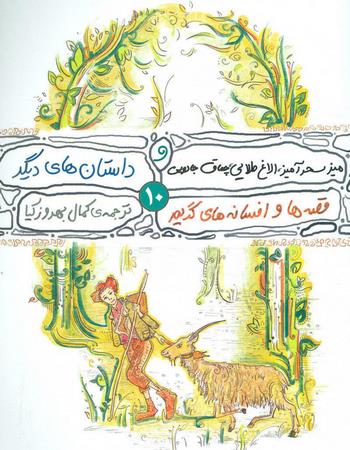 میز سحرآمیز، الاغ طلایی، چماق جادویی
و
داستان های دیگر
قصه ها و افسانه های گریم
۱۰
ترجمه‌ی کمال بهروزکیا